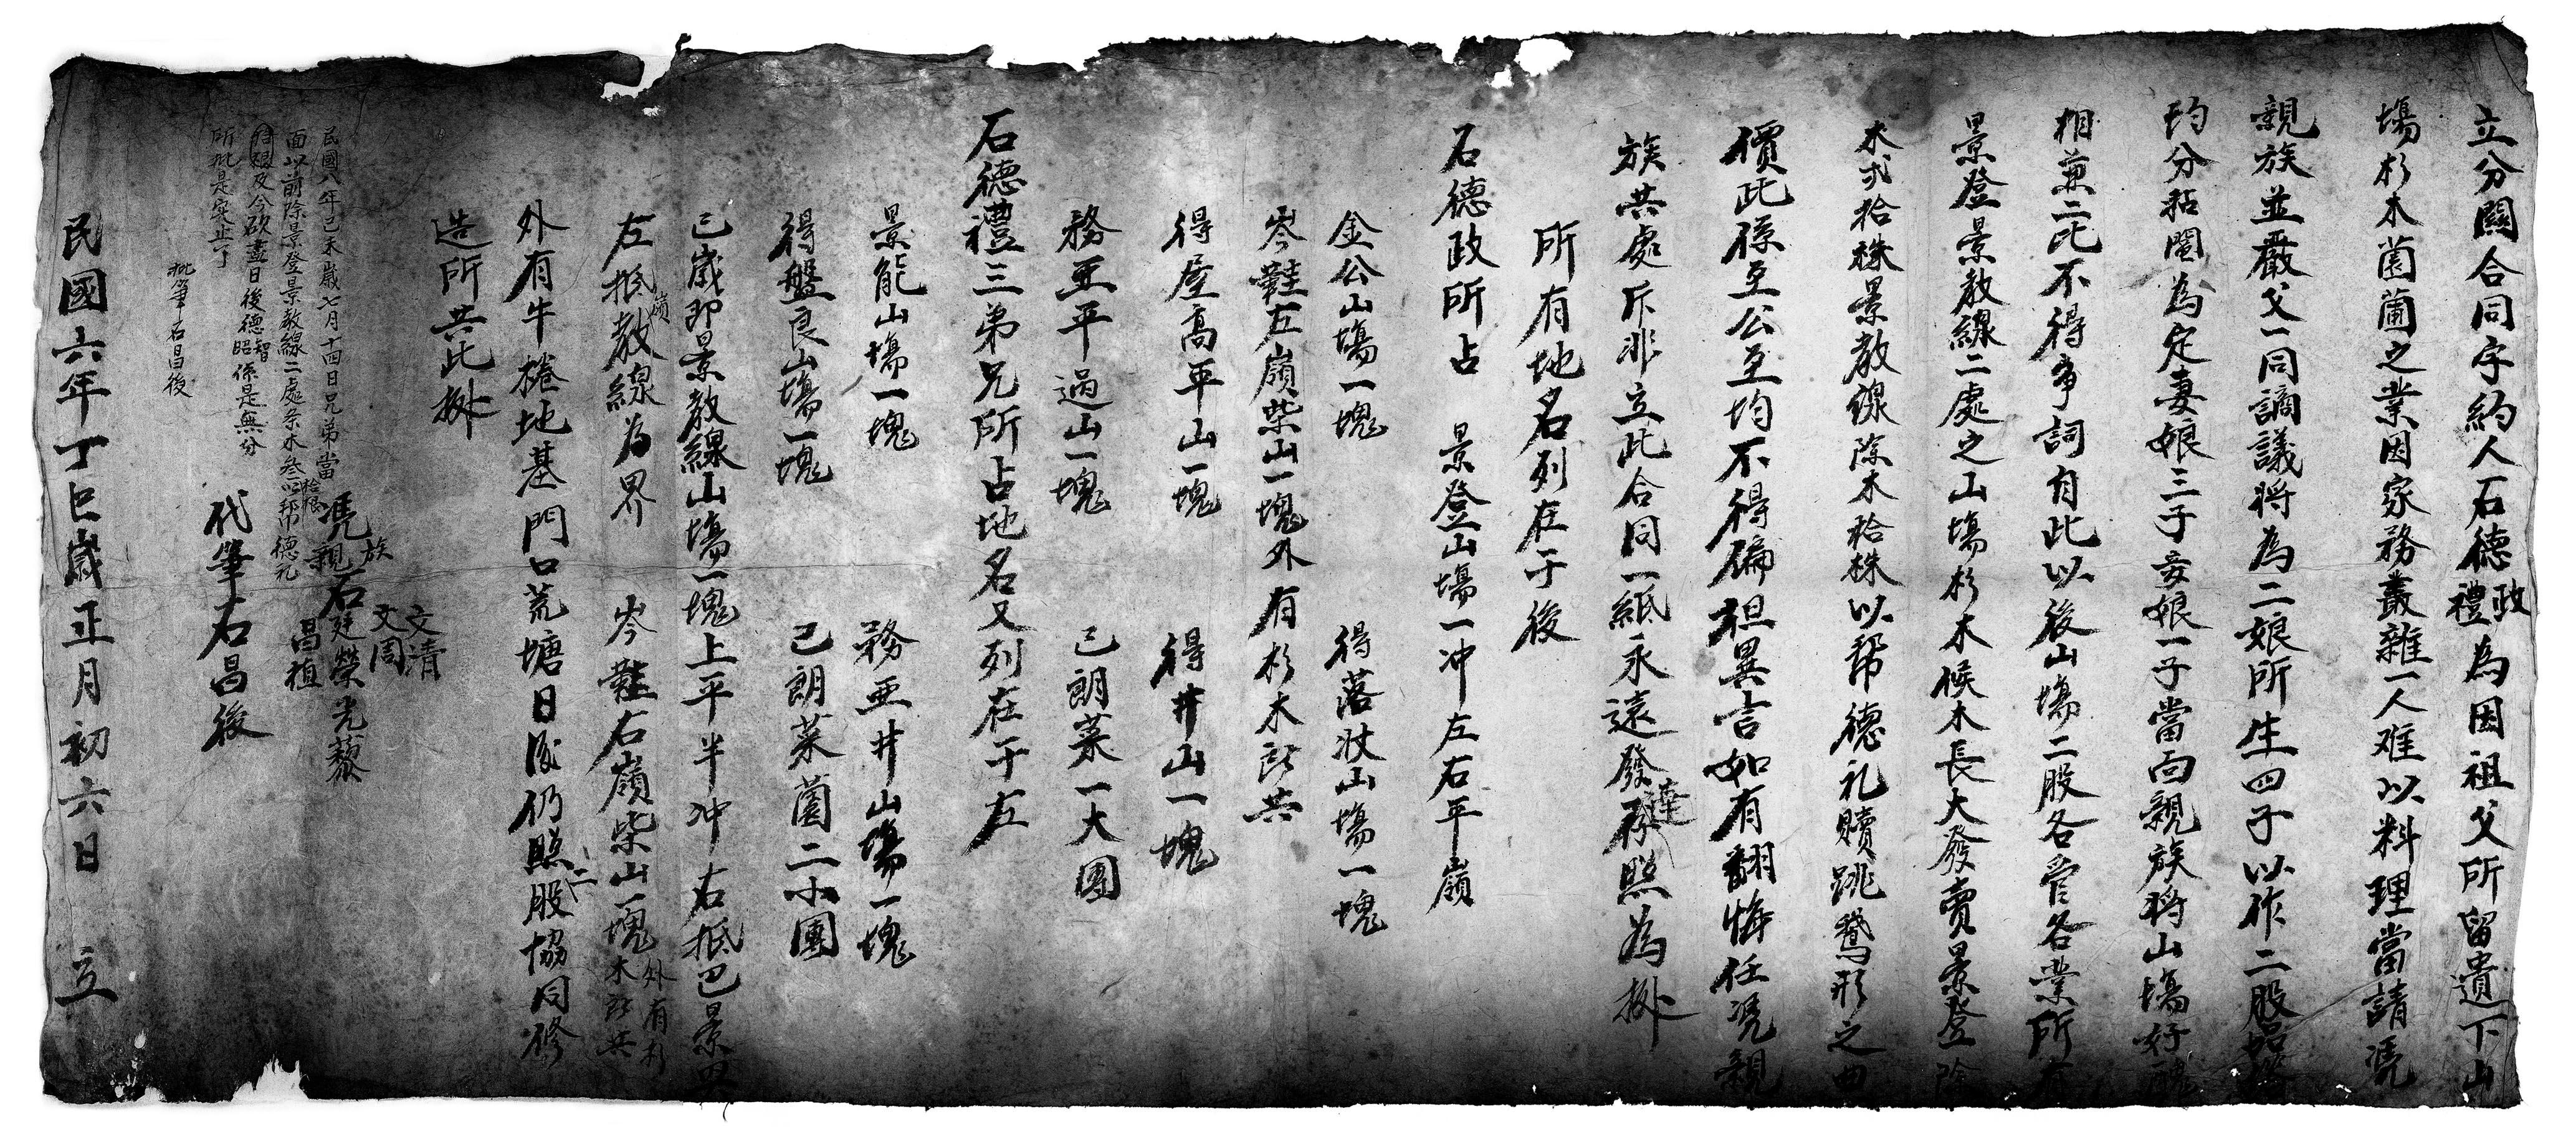 立分關合同字約人石德政禮為因祖父所留遺下山
塲杉木薗圃之業因家務叢雜一人难以料理當請凴
親族並嚴父一同謫議將為二娘所生四子以作二股品搭
均分粘鬮為定妻娘三子妾娘一子當面親族將山塲好醜
相兼二比不得争詞自此以後山塲二股各管各業所有
景登景教線二處之山塲杉木候木長大發賣景登除
木弍拾株景教線除木拾株以幇德礼贖跳鵝形之田
價此係至公至均不得偏袒異言如有翻悔任凴親
族共處斥非立此合同一紙永遠發達存照為㨿
所有地名列在于後
石德政所占 景登山塲一冲左右平嶺
金公山塲一塊 得落妝山塲一塊
岑鞋左嶺柴山一塊外有杉木所共
得屋高平山一塊 得井山一塊
務亚平過山一塊 己朗菜一大團
石德禮三弟兄所占地名又列在于左
景能山塲一塊 務亚井山塲一塊
得盤良山塲一塊 己朗菜薗二小團
己歲即景教線山塲一塊上平半冲右抵己景男
左抵教線嶺為界 岑鞋右嶺柴山一塊外有杉木所共
外有牛棬地基門口荒塘日後仍照二股協同修
造所共此㨿
文清
文周
凴親族石廷榮光藜
昌植
民國八年己未歲七月十四日兄弟當
面以前除景登景教線二處条木叁拾根以帮德礼
及今砍盡日後德智昭係是無分
所批是实止了
批筆石昌後
代筆石昌後
民國六年丁巳歲正月初六日 立